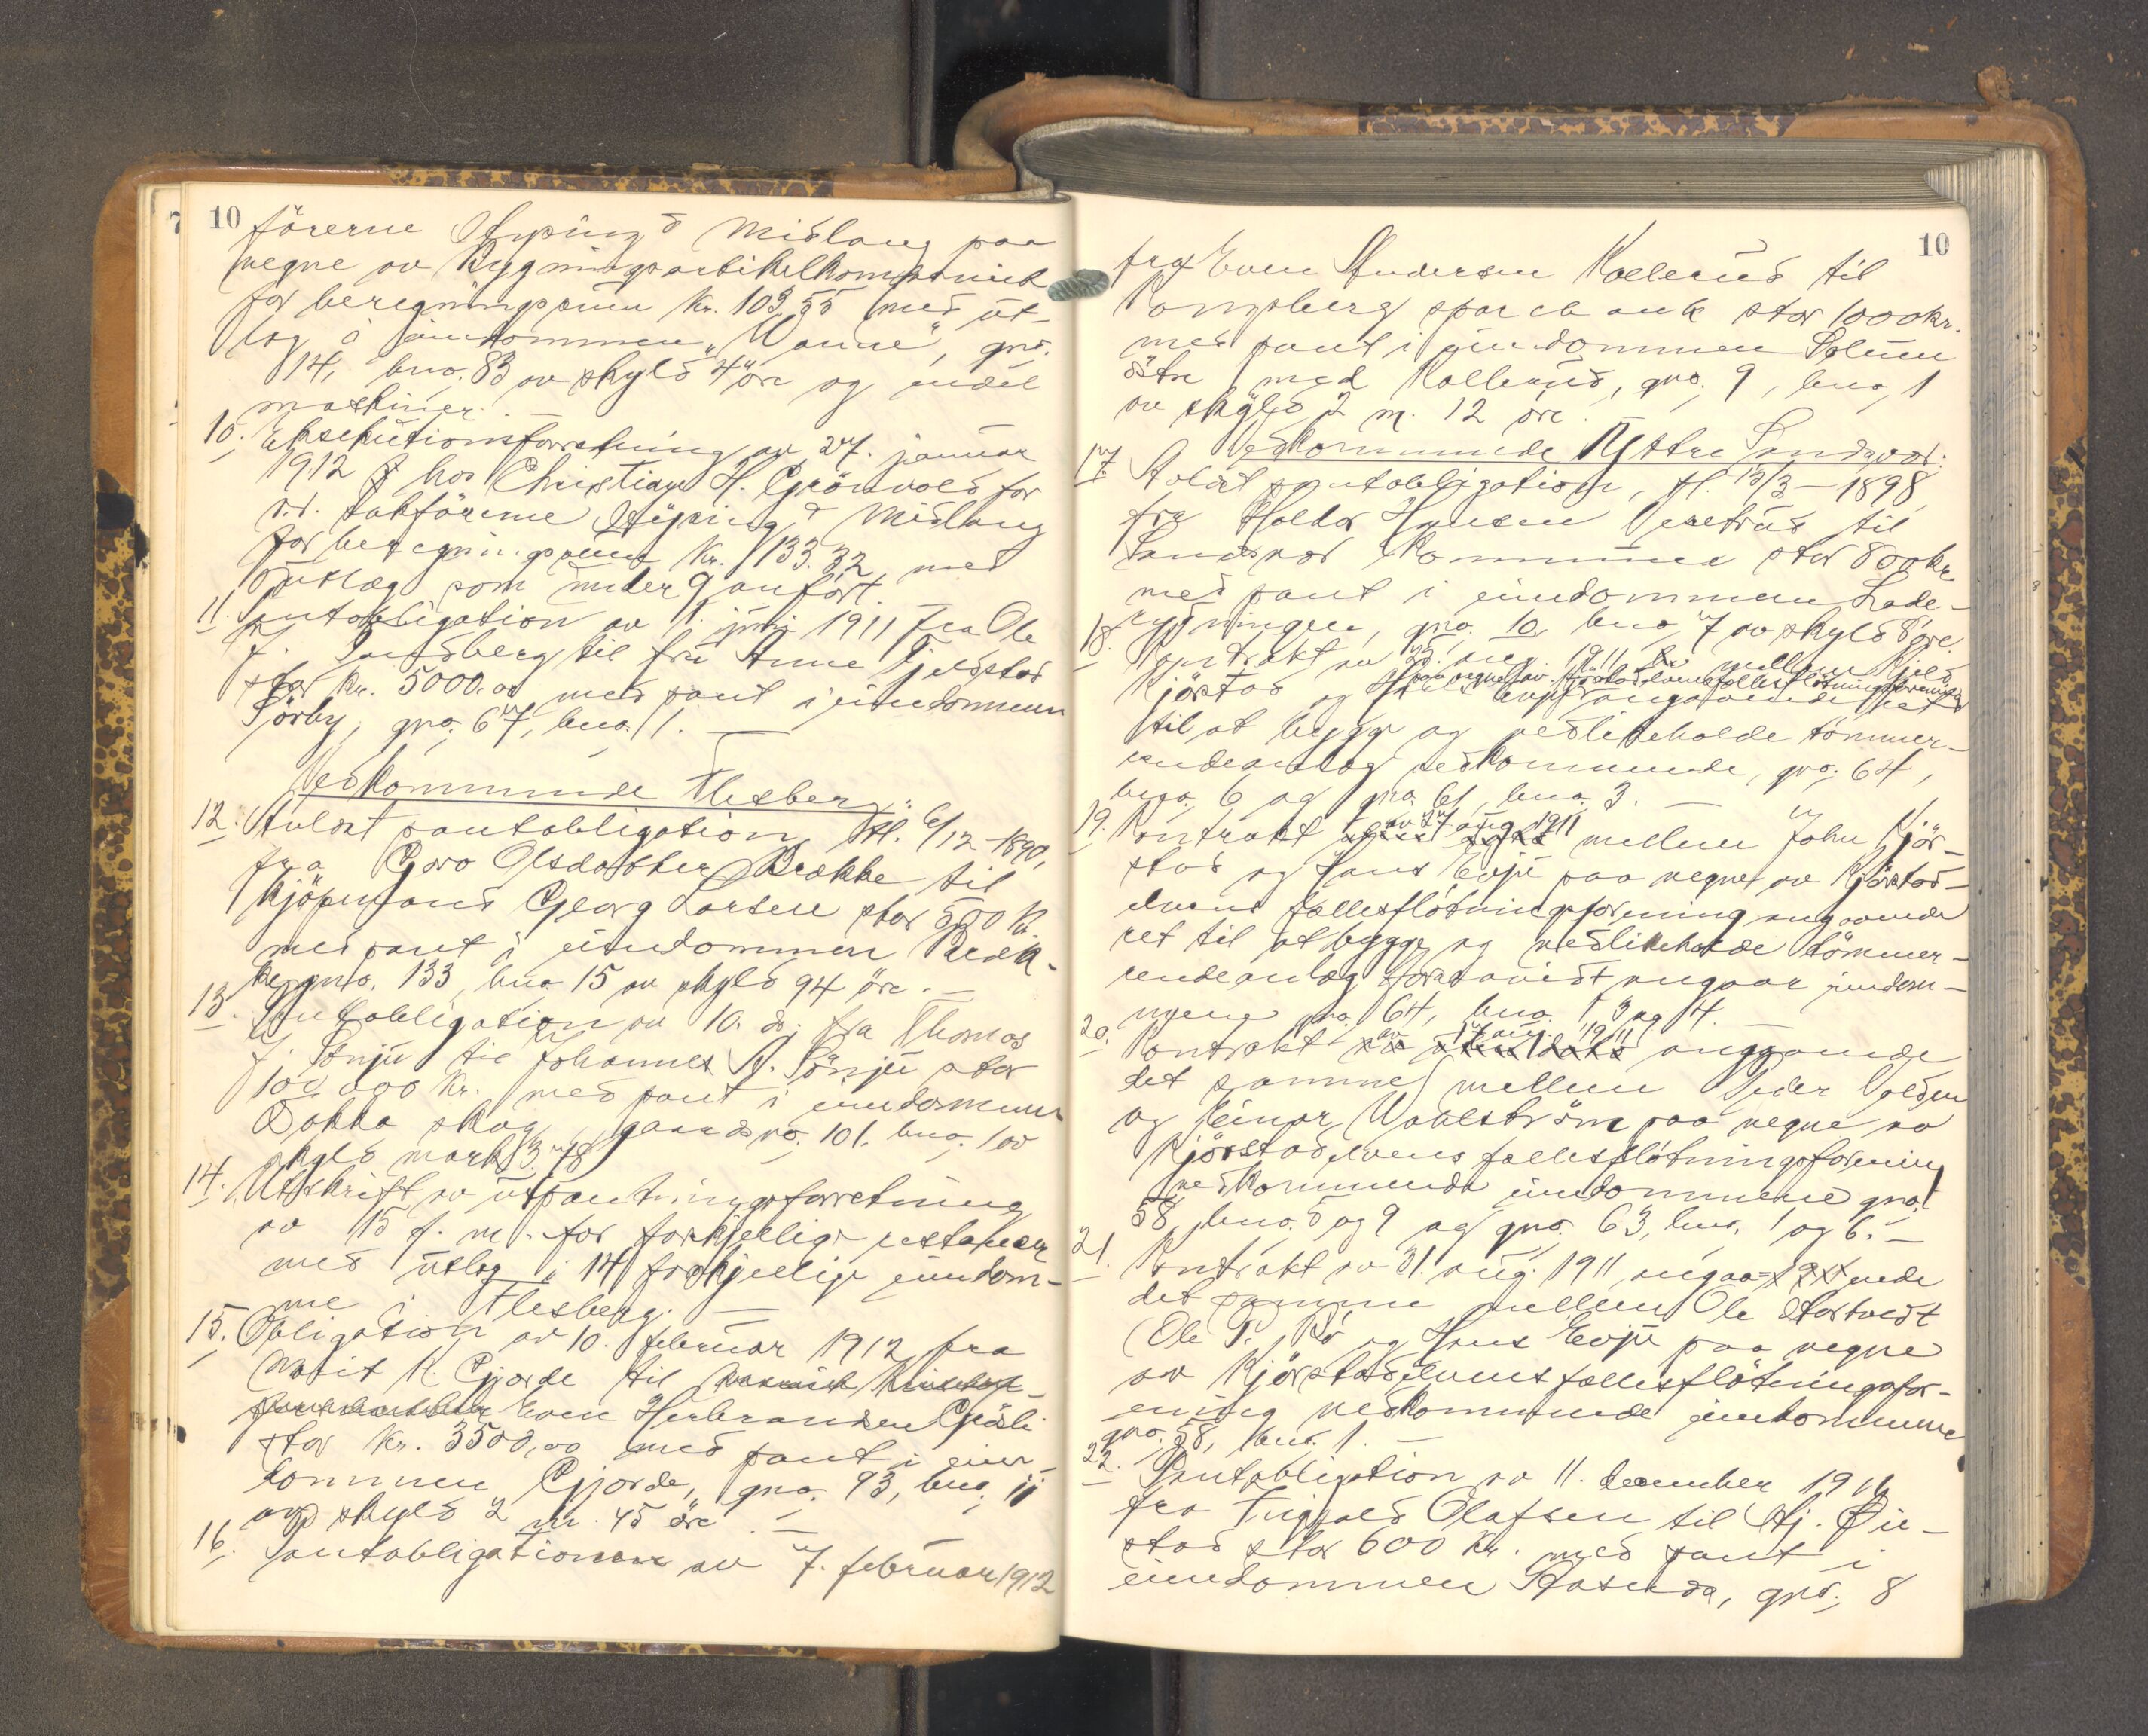 10
förerne & Midlang paa
vegne av Bygningsartikelkompaniet
for beregningssum kr. 103,55 med ut-
læg i eiendommen, "Wanne", gno.
14, bno. 83 av skyld 4 øre og endel
maskiner. —
10. Eksekutionsforretning av 27. januar
1912 hos Christian H. Grönvold for
s.d. sakförerne & Midlang
for beregningssum kr. 133.32 med
utlæg som under 9 anfört.
11. Pantobligation av 1. juni 1911 fra Ole
J. Landsberg til fru Anne Fjeldstad
stor kr. 5000.00 med pant i eiendommen
Sörby, gno. 67, bno. 1. —
Vedkommende Flesberg:
12. Avlöst pantobligation, tl. 6/12-1890,
fra Goro Olsdatter Brække til
kjöpmand Georg Larsen stor 500 kr.
med pant i eiendommen Bræk-
ke, gno. 133, bno. 15 av skyld 94 öre. —
13. Pantobligation av 10. ds. fra Thomas
J. Sönju til Johannes A. Sönju stor
100,000 kr. med pant i eiendommen
Dokka skog, gaardsno. 101. bno. 1 av
skyld mark 3.78
14. Utskrift av utpantningsforretning
av 15 f. m. for forskjellige restancer
med utlæg i 14 forskjellige eiendom-
me i Flesberg. —
15. Obligation av 10. februar 1912 fra
Marit K. Gjorde til
Even Herbrandsen Gjösli
stor kr. 3500,00 med pant i eien-
dommen Gjorde, gno. 93, bno. 11
av skyld 2 m. 45 öre. —
16. Pantobligationen av 7. februar 1912
10
fra Even Andersen Kollerud til
Kongsberg sparebank stor 1000 kr.
med pant i eiendommen Solum
östre med Kollerud, gno. 9, bno. 1
av skyld 2 m. 12 öre.
Vedkommende Ytre Sandsvær:
17. Avlöst pantobligation, tl. 15/3-1898,
fra Halvor Hansen til
Sandsvær kommune stor 800 kr.
med pant i eiendommen Lade-
rydningen, gno. 10, bno. 7 av skyld 8 öre.
18. Kontrakt av 22. aug. 1911 mellem Kjeld
paa vegne av Kjörstadelvens fællesflötningsforening
Kjörstad og Hans Evju angaaende ret
til at bygge og vedlikeholde tömmer-
rendeanlæg vedkommende, gno. 64,
bno. 6 og gno. 61, bno. 3. —
av 27 aug. 1911
19. Kontrakt mellem John Kjör-
stad og Hans Evju paa vegne av Kjörstad-
elvens fællesflötningsforening angaaende
ret til at bygge og vedlikeholde tömmer-
rendeanlæg forsaavidt angaar eiendom-
mene gno. 64, bno. 1, 3 og 4.
av 17 aug. 1911
20. Kontrakt angaaende
det samme mellem Peder Volden
og Einar Wahlström paa vegne av
Kjörstadelvens fællesflötningsforening
vedkommende eiendommene gno.
58, bno. 5 og 9 og gno. 63, bno. 1 og 6. —
21. Kontrakt av 31. aug. 1911 angaaende
det samme mellem Ole Stortvedt
(Ole P. og Hans Evju paa vegne
av Kjörstadelvens fællesflötningsfor-
ening vedkommende eiendommene
gno. 58, bno. 1. —
22. Pantobligation av 11. december 1911
fra Olafsen til Hj. Øie-
stad stor 600 kr. med pant i
eiendommen , gno. 8